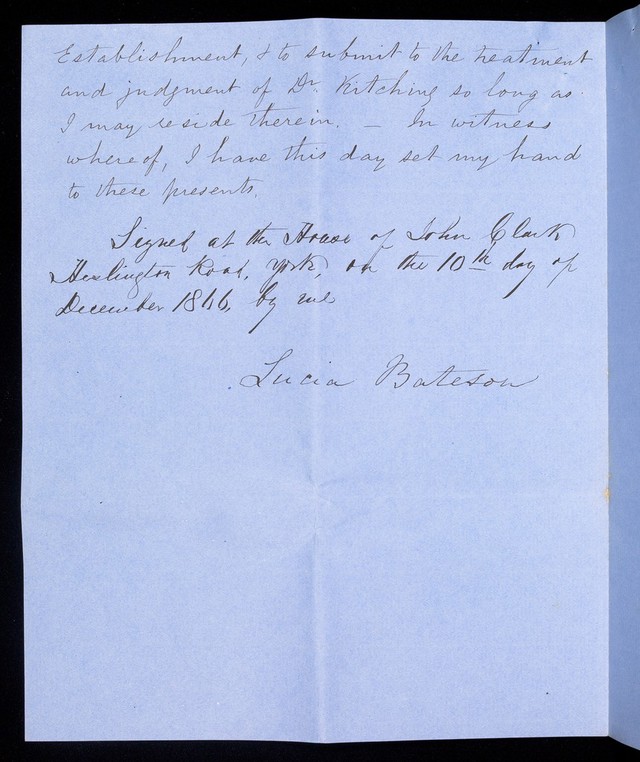 Establishment, & to submit to the treatment
and judgment of Dr. Kitching so long as
I may reside therein. — In witness
whereof, I have this day set my hand
to these presents.
Signed at the House of John Clark
Heslington Road, York, on the 10th day of
December 1866, by me
Lucia Bateson